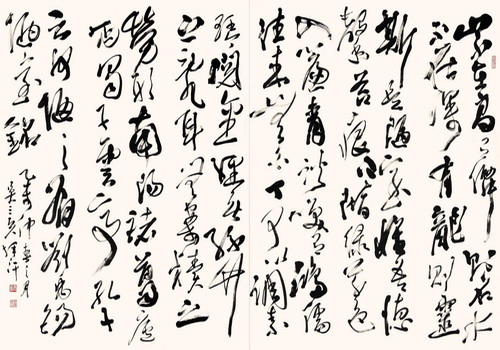 山不在高有僊則名水
不在深有龍則靈
斯是陋室惟吾德
馨苔痕上階綠草色
入簾青談笑有鴻儒
往來無白丁可以調素
琴閱金經無絲竹
之亂耳無案牘之
勞形南陽諸葛廬
西蜀子雲亭孔子
云何陋之有劉禹錫
陋室銘
仲春之月